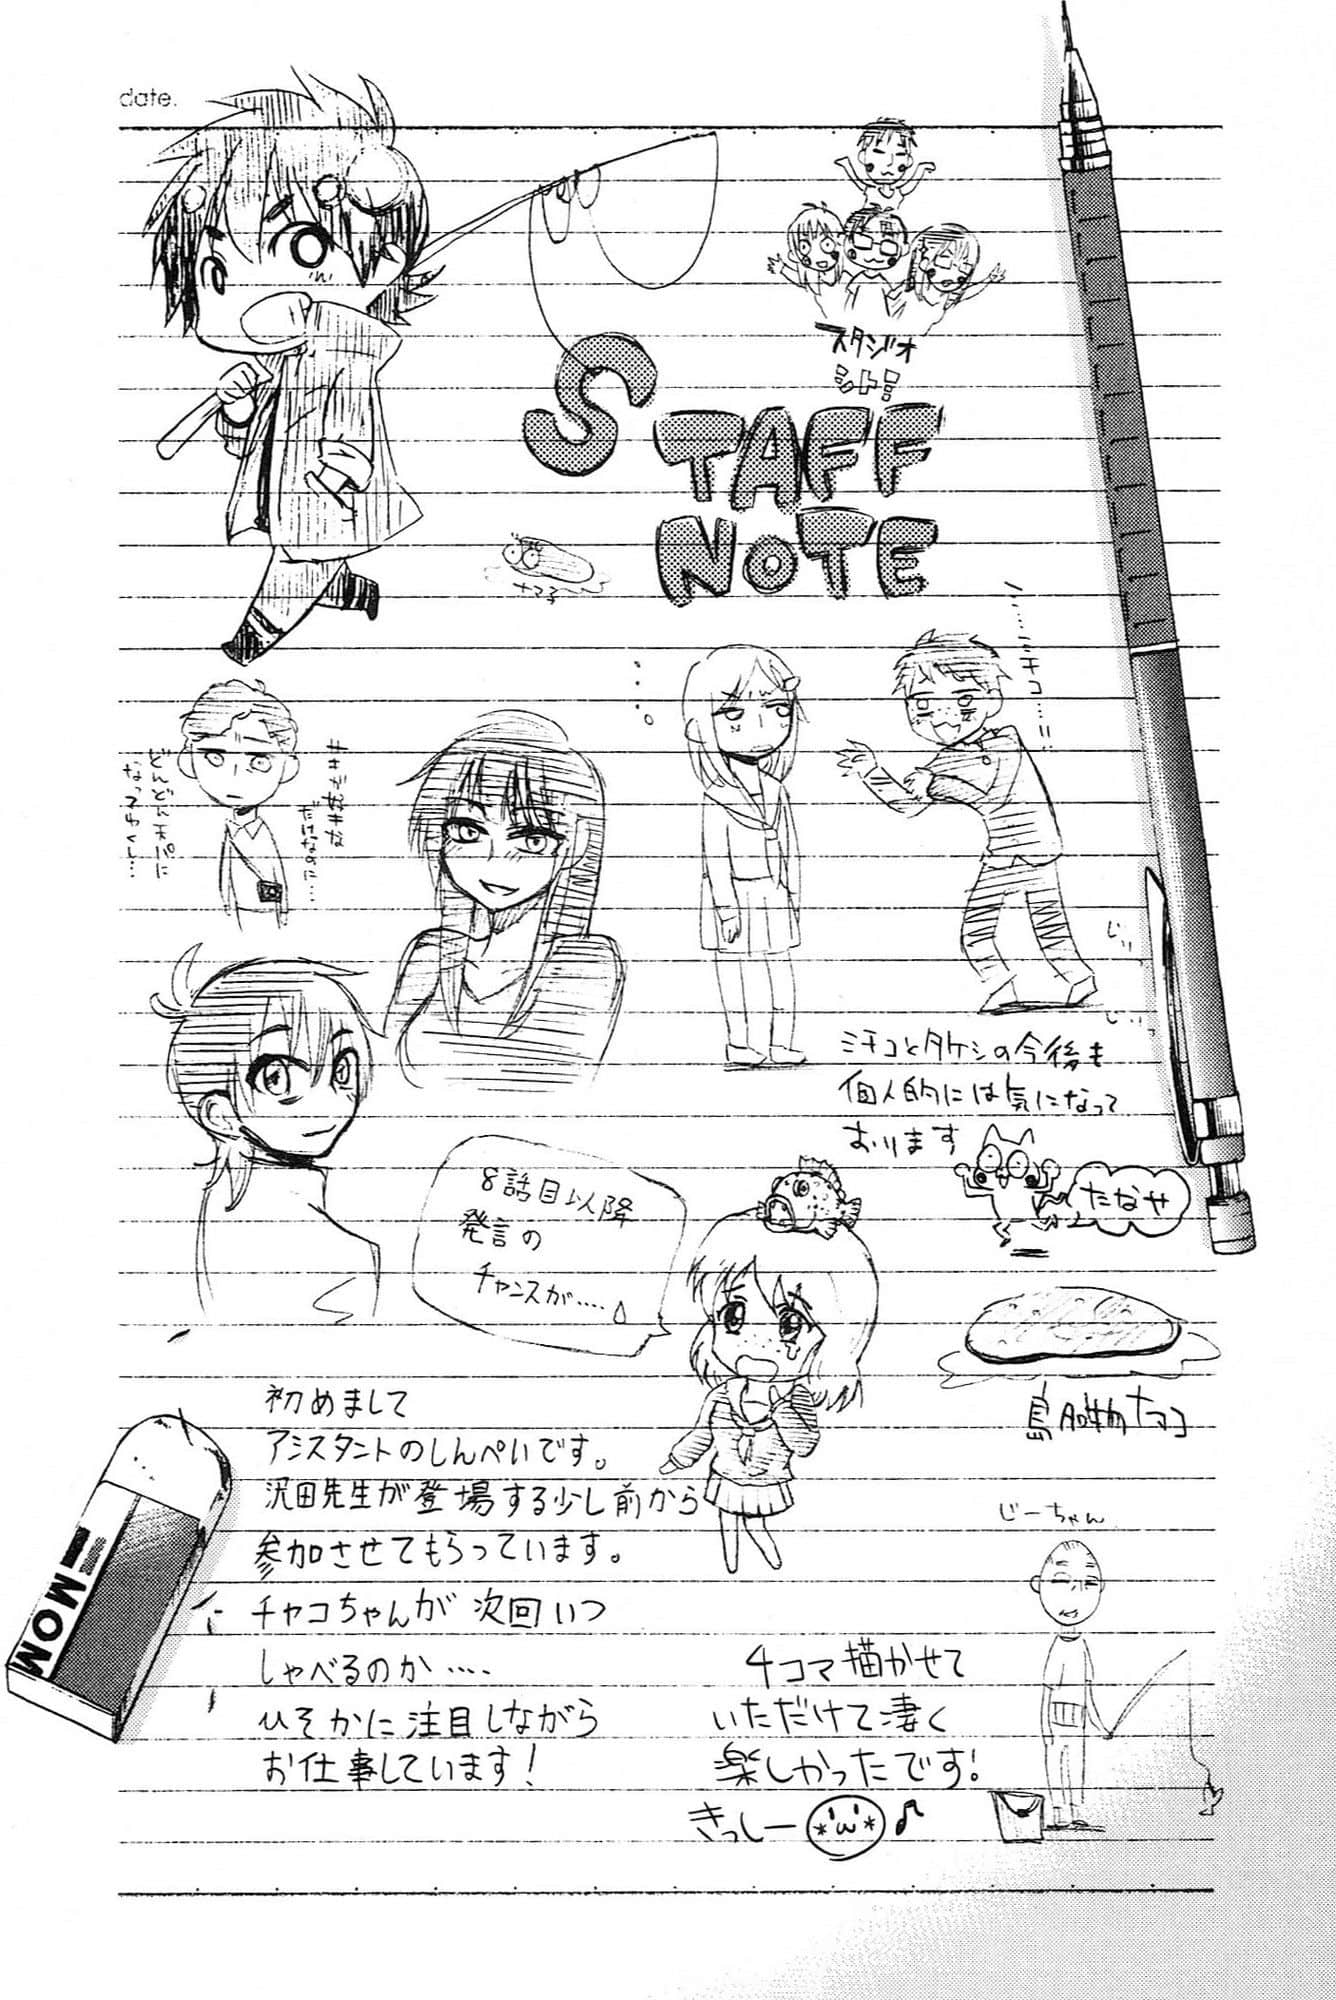 date.
スタジオ
シトミ
STAFF
NOTE
ナマ子
だけなのに…
どんどん天パに
なってゆく…
ミチコとタケシの今後も
個人的には気になって
おります
たなせ
8話目以降
発言の
チャンスが‥‥
初めまして
アシスタントのしんぺいです。
沢田先生が登場する少し前から
参加させてもらっています。
チャコちゃんが次回いつ
しゃべるのか‥‥
ひそかに注目しながら
お仕事しています!
MOM
じーちゃん
4コマ描かせて
いただけて凄く
楽しかったです!
きっしー